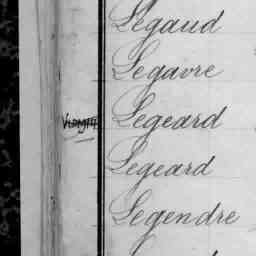 Legaud
Legavre
Legeard
Legeard
Legendre